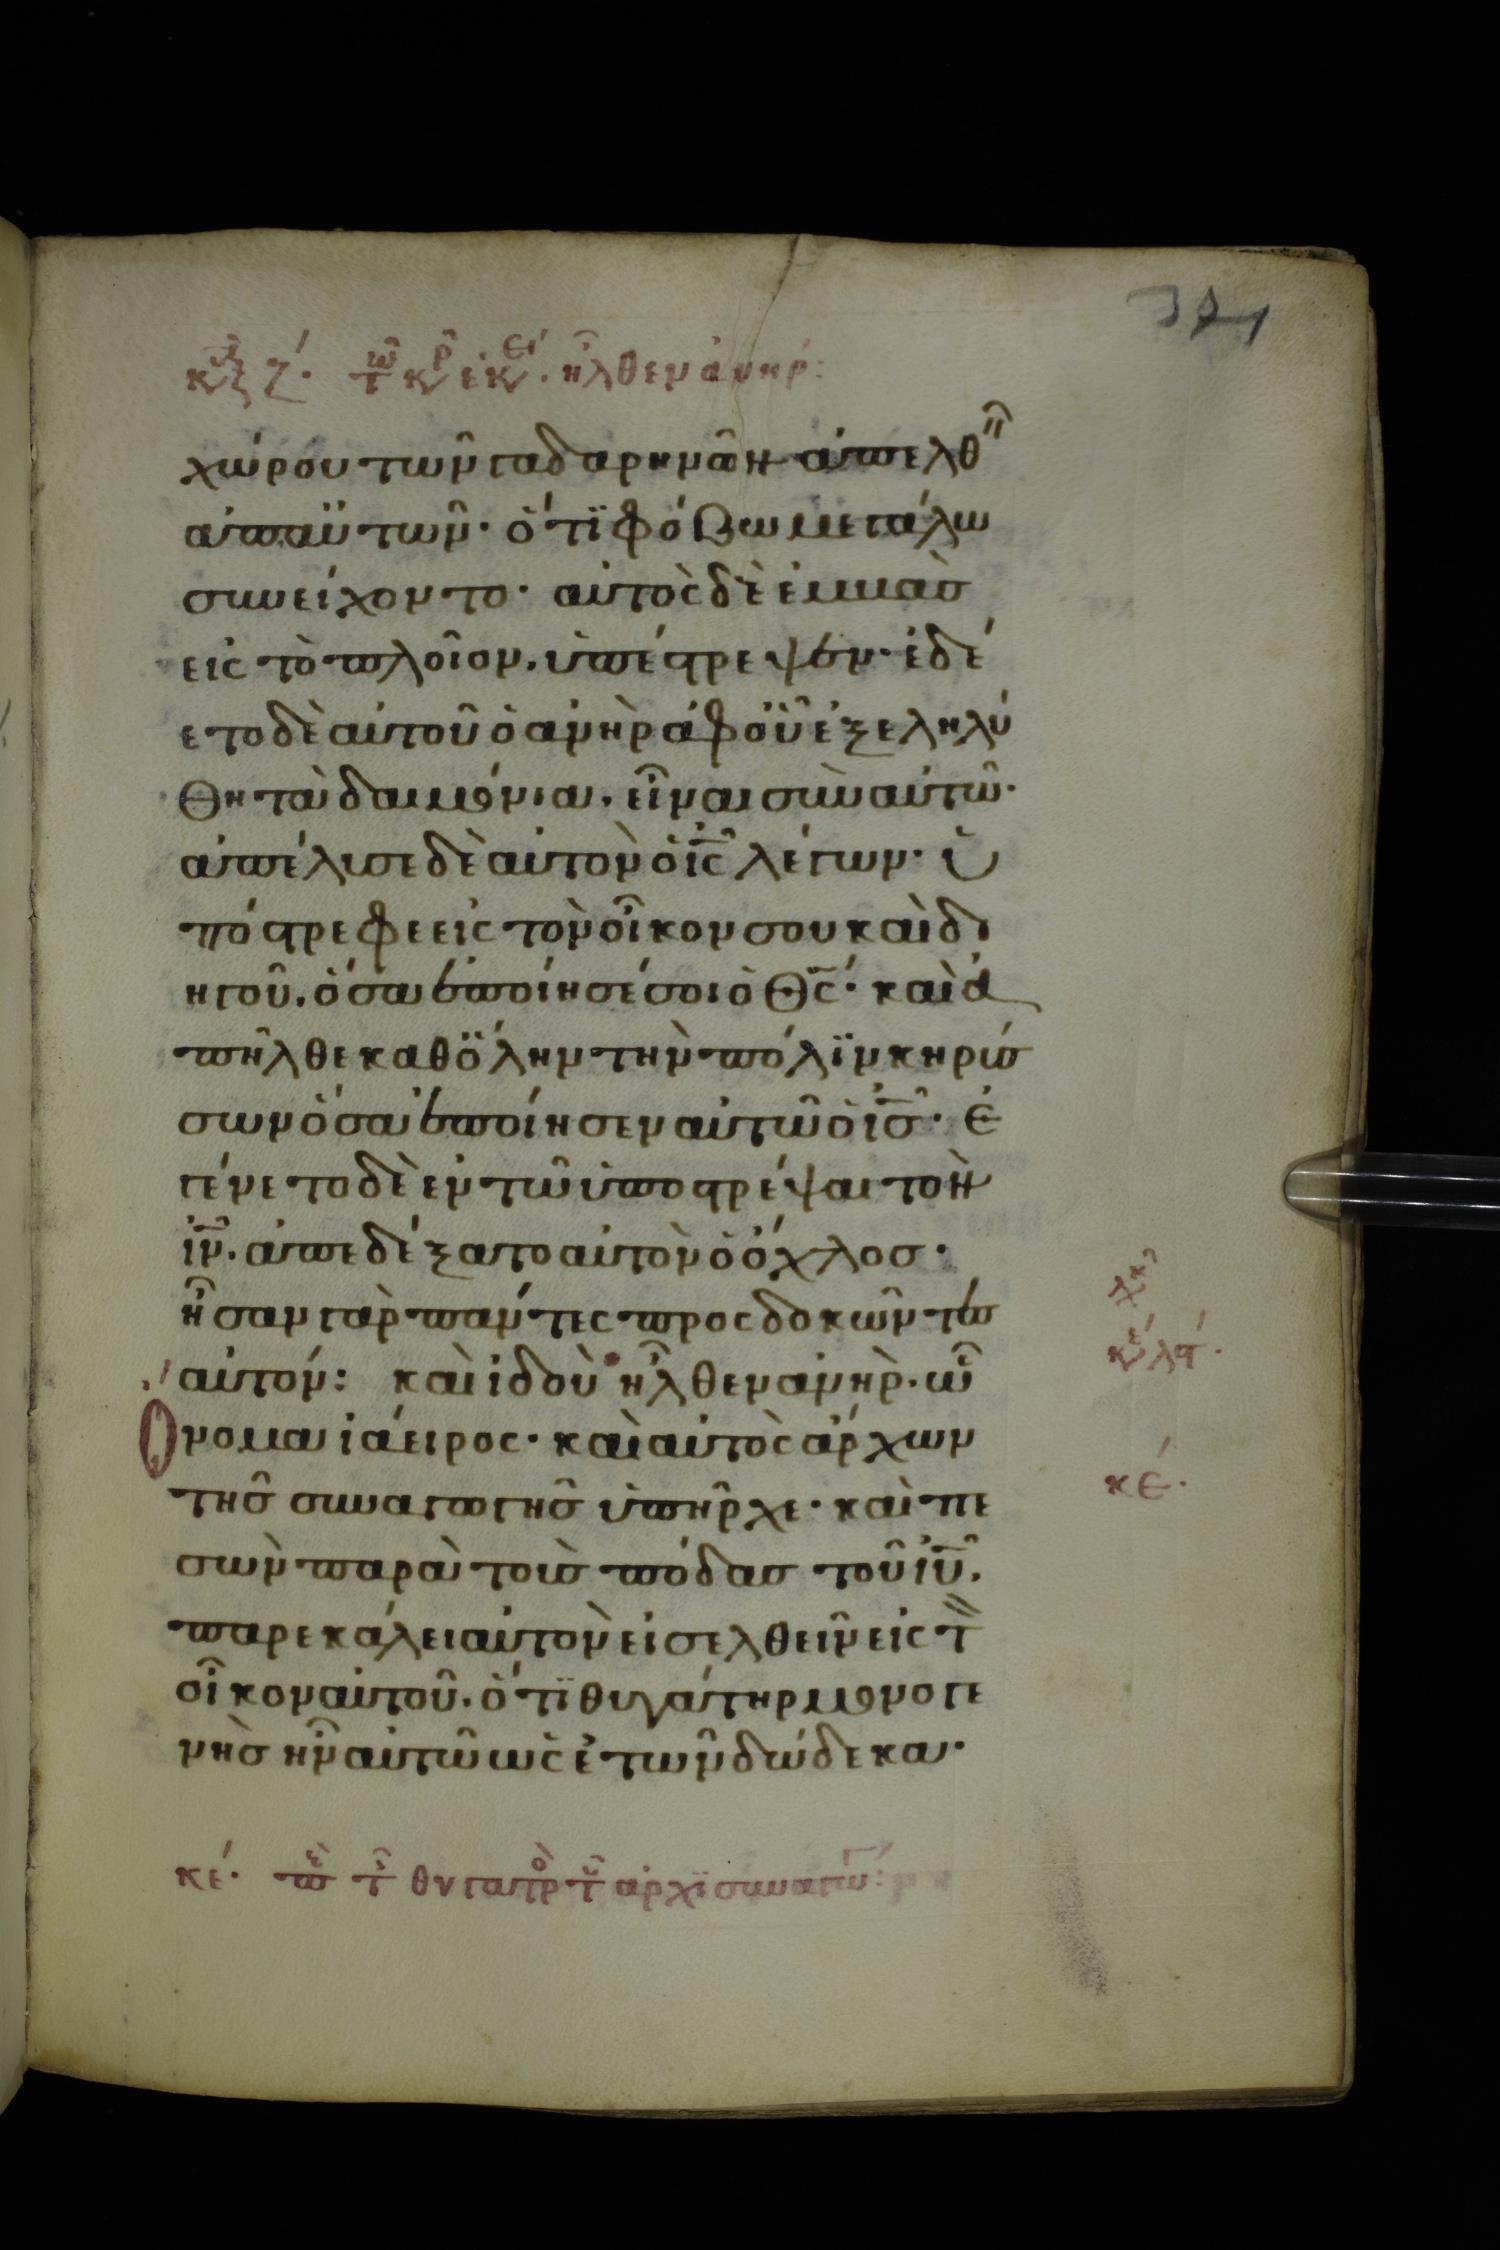 κυ ζ τω κρ εκ ἦλθεν ἀνήρ:
χώρου τῶν γαδαρηνῶν ἀπελθ
ἀπαὐτῶν· ὅτϊ φόβω μεγάλω
συνείχοντο· αὐτὸς δὲ ἐμβὰσ
εἰς τὸ πλοῖον. ὑπέστρεψεν· ἐδέ
ετο δὲ αὐτοῦ ὁ ἀνὴρ ἀφοὗ ἐξεληλύ
θη τὰ δαιμόνια. εἶναι σὺν αὐτῶ·
ἀπέλυσε δὲ αὐτὸν ὁ ις λέγων· ὑ
πόστρεφε εἰς τὸν οἶκον σου καὶ δι
ηγοῦ. ὅσα ἐποίησέ σοι ὁ θς· καὶ ἀ
πῆλθε καθόλην τὴν πόλϊν κηρύσ
σων ὅσα ἐποίησεν αὐτῶ ὁ ισ· ἐ
γένετο δὲ ἐν τῶ ὑποστρέψαι τὸν
ιν. ἀπεδέξατο αὐτὸν ὁ ὄχλοσ·
ἦσαν γὰρ πάντες προςδοκῶντεσ
αὐτόν: καὶ ἰδοὺ ἦλθεν ἀνὴρ. ὧ
ὄνομα ἰάειρος· καὶ αὐτὸς ἄρχων
τῆσ συναγωγῆσ ὑπῆρχε· καὶ πε
σὼν παρὰ τοὺσ πόδασ τοῦ ιυ.
παρεκάλει αὐτὸν εἰσελθεῖν εἰς τ
οἶκον αὐτοῦ. ὅτϊ θυγάτηρ μονογε
νὴσ ἦν αὐτῶ ὡς ἐτῶν δώδεκα·
κε· πε τ θυγατρο τ ἀρχϊσυναγώγ:
κυ λϛ·
κε·